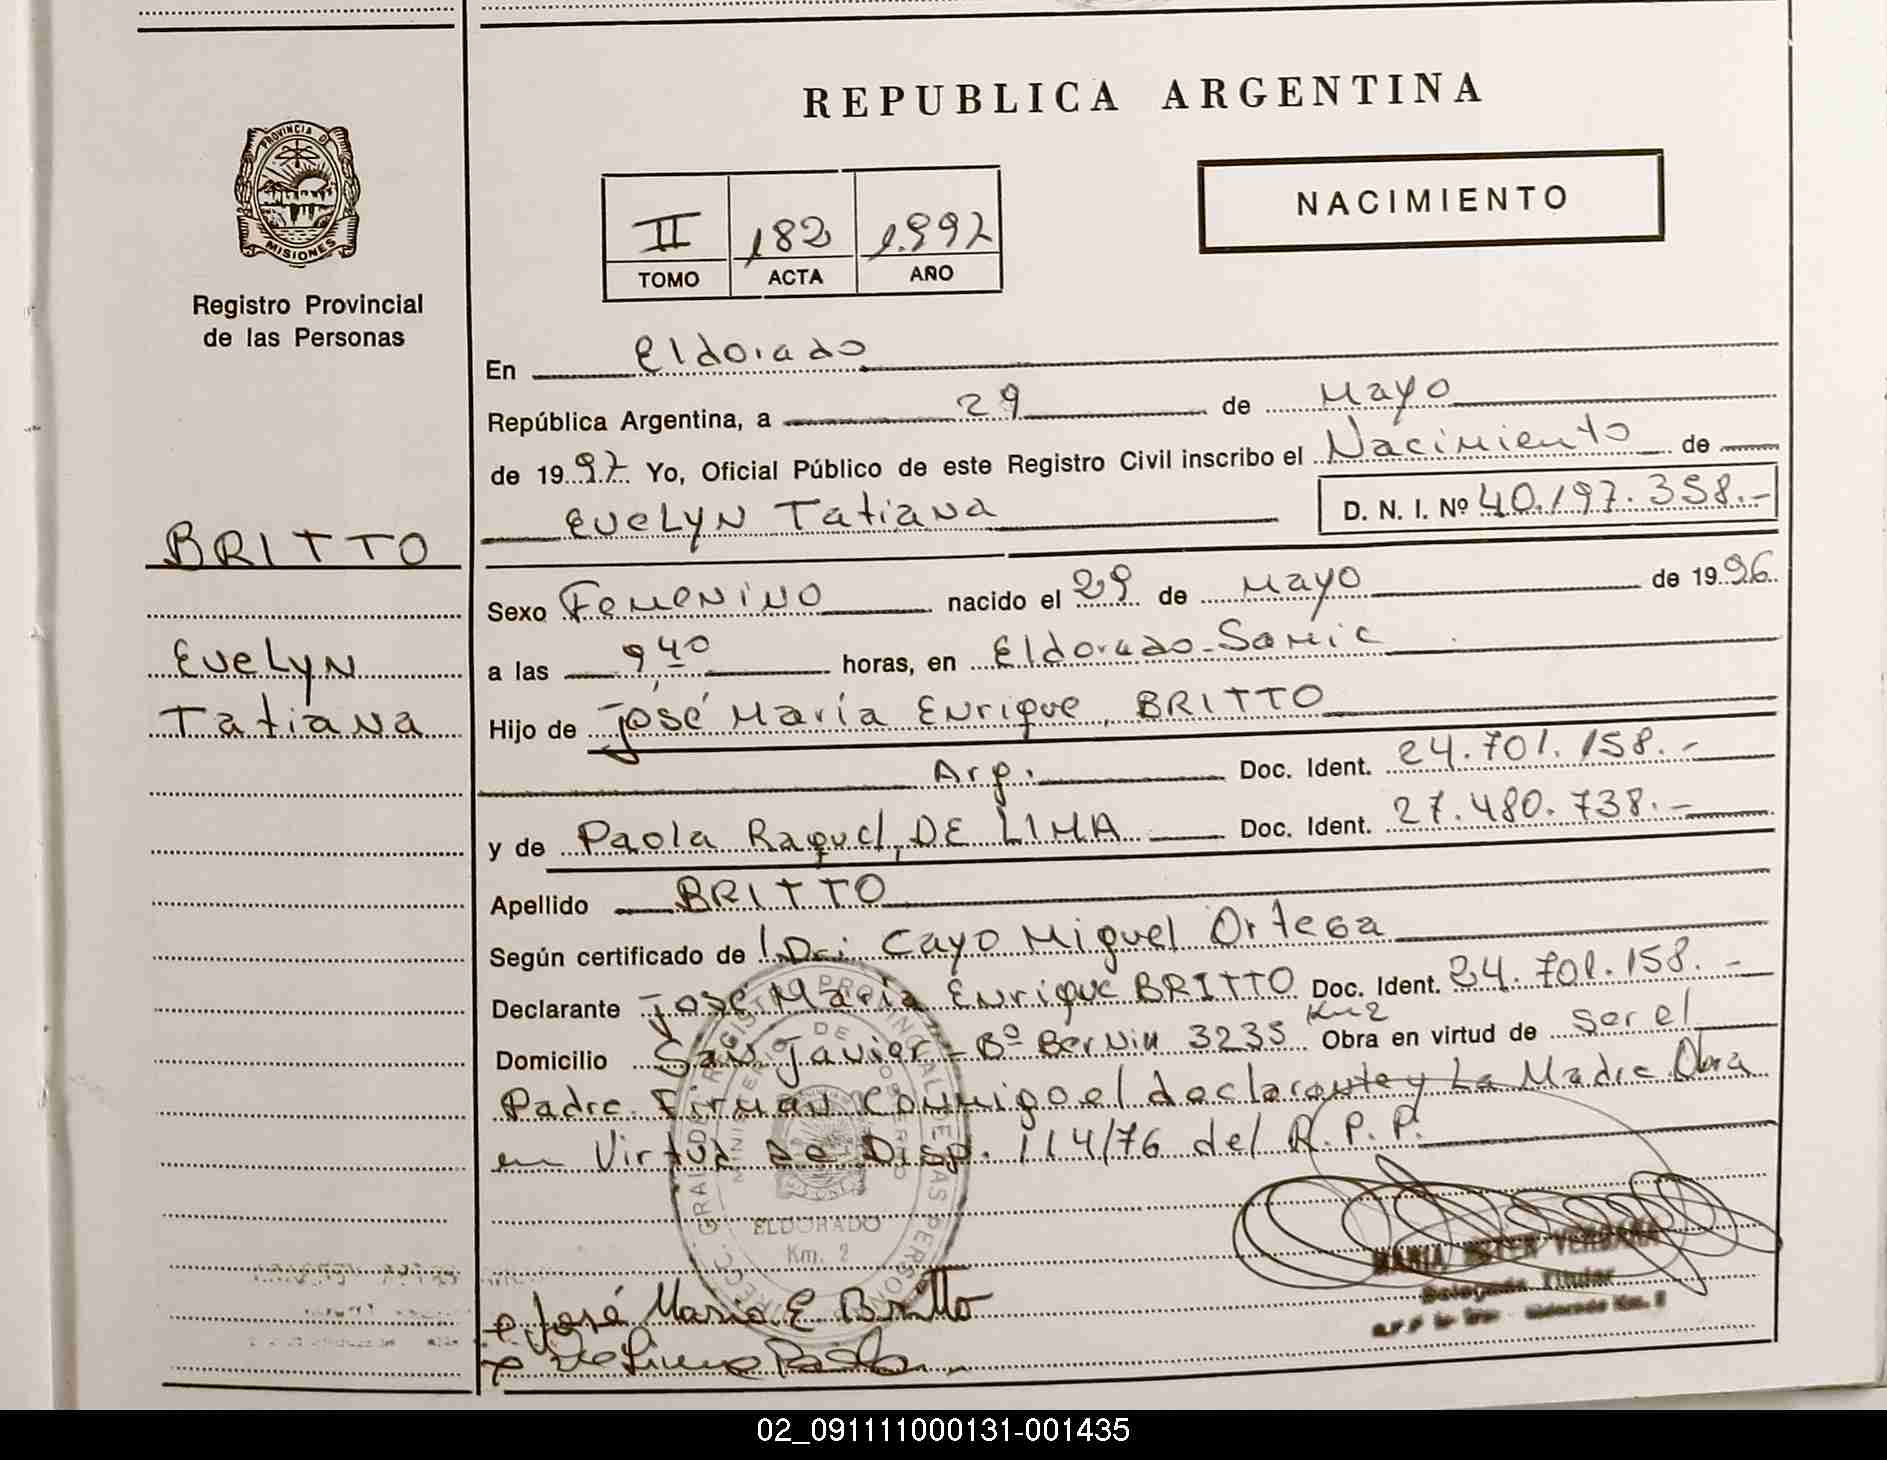 REPUBLICA ARGENTINA
PROVINCIA D
MISIONES
Registro Provincial
de las Personas
NACIMIENTO
II 182 1.997
TOMO ACTA AÑO
En Eldorado
República Argentina, a 29 de Mayo
de 1997 Yo, Oficial Público de este Registro Civil inscribo el Nacimiento de
Evelyn Tatiana D. N. I. Nº 40.197.358.-
BRITTO
Evelyn
Tatiana
Sexo Femenino nacido el 29 de Mayo de 1996
a las 9,40 horas, en Eldorado-Samic
Hijo de José María Enrique, BRITTO
Arg. Doc. Ident. 24.701.158.-
y de Paola Raquel, DE LIMA Doc. Ident. 27.480.738.-
Apellido BRITTO
Según certificado de Dr: Cayo Miguel Ortega
Declarante José María Enrique BRITTO Doc. Ident. 24.701.158.-
Domicilio San Javier - Bº Bernin 3235 Km2 Obra en virtud de ser el
Padre. Firman Conmigo el declarante y La Madre. Obra
en Virtud de Disp. 114/76 del R.P.P.
ELDORADO
Km. 2
MARIA ESTER VERGARA
Delegada Titular
José Maria E Britto
De Lima Paola
02_091111000131-001435